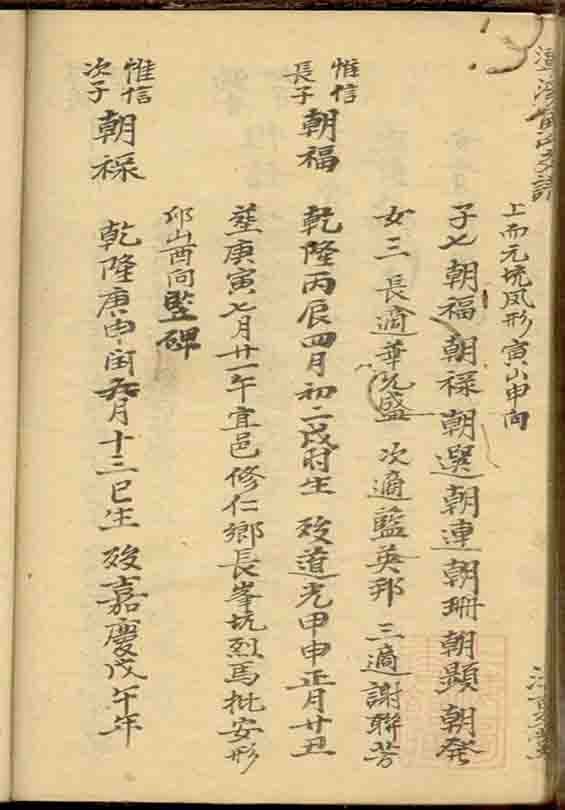 上南元坑凤形寅山申向
子七 朝福 朝祿 朝選 朝連 朝珊 朝顯 朝發
女三 長適華 盛 次適藍英邦 三適謝聯芳
惟信長子 朝福 乾隆丙辰四月初二戌时生 歿道光甲申正月廿丑
葬庚寅七月廿一午宜邑修仁鄉長峯坑烈馬 安形
卯山酉向竪碑
惟信次子 朝祿 乾隆庚申闰 月十三巳生 歿嘉慶戊午年